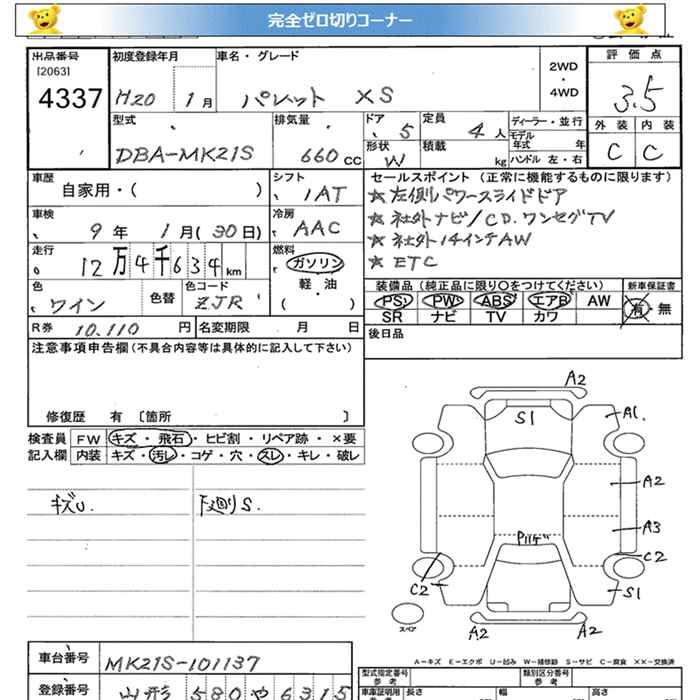 完全ゼロ切りコーナー
出品番号
[2063]
4337
初度登録年月
H20 1月
車名・グレード
パレット XS
2WD
・
4WD
評価点
3.5
型式
DBA-MK21S
排気量
660cc
ドア
5
定員
4人
形状
W
積載
kg
ディーラー・並行
モデル
年式 年
ハンドル 左・右
外装 内装
C C
車歴
自家用・( )
シフト
IAT
セールスポイント (正常に機能するものに限ります)
☆左側パワースライドドア
☆社外ナビ/CD.ワンセグTV
☆社外14インチAW
☆ETC
車検
9年 1月(30日)
冷房
AAC
走行
12万4千634km
燃料
ガソリン
軽・油
( )
色
ワイン
色替
色コード
ZJR
装備品 (純正品に限り○をつけてください)
PS PW ABS エアB AW
SR ナビ TV カワ
新車保証書
有・無
R券
10.110円
名変期限 月 日
後日品
注意事項申告欄(不具合内容等は具体的に記入して下さい)
修復歴 有 〔箇所 〕
検査員
記入欄
FW キズ・飛石・ヒビ割・リペア跡・×要
内装 キズ・汚レ・コゲ・穴・スレ・キレ・破レ
キズU.
下廻りS.
A2
S1
A1.
A2
A3
C2
C2
S1
A2
A2
スペア
A-キズ E-エクボ U-凹み W-補修跡 S-サビ C-腐食 XX-交換済
車台番号
MK21S-101137
登録番号
山形 580 や 6315
型式指定番号
参考
類別区分番号
参考
車庫証明用
長さ
幅
高さ